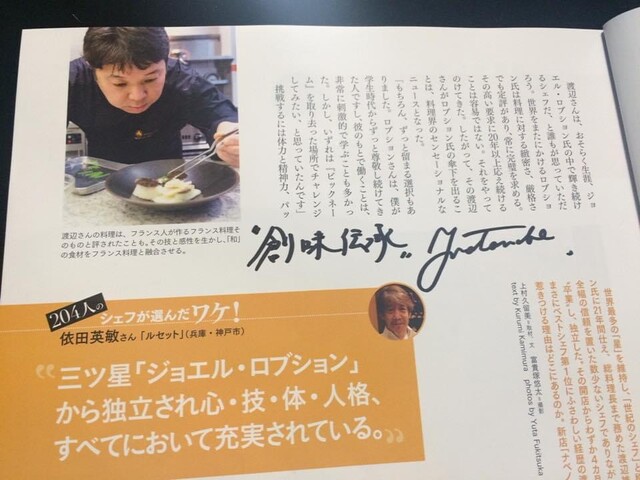 渡辺さんは、おそらく生涯、ジョ
エル・ロブション氏の中で輝き続け
るシェフだ、と誰もが思っていただ
ろう。世界をまたにかけるロブショ
ン氏は料理に対する緻密さ、厳格さ
でも定評があり、常に完璧を求める。
その高い要求に20年以上応え続ける
ことは容易ではない。それをやって
のけてきた。したがって、その渡辺
さんがロブション氏の傘下を出るこ
とは、料理界のセンセーショナルな
ニュースとなった。
「もちろん、ずっと留まる選択もあ
りました。ロブションさんは、僕が
学生時代からずっと尊敬し続けてき
た人ですし、彼のもとで働くことは、
非常に刺激的で学ぶことも多かっ
た。しかし、いずれは『ビックネー
ム』を取り去った場所でチャレンジ
してみたい、と思っていたんです」
挑戦するには体力と精神力、バッ
渡辺さんの料理は、フランス人が作るフランス料理そ
のものと評されたことも。その技と感性を生かし、「和」
の食材をフランス料理と融合させる。
"創味伝承"
世界最多の「星」を維持し、「世紀のシェフ」と
ン氏に21年間仕え、総料理長まで務めた渡辺
全幅の信頼を置いた数少ないシェフでありなが
“卒業”し、独立した。その開店からわずか4カ月
まさにベストシェフ第1位にふさわしい経歴の渡
惹きつける理由はどこにあるのか。新店「ナベノ
上村久留美=取材、文 富貴塚悠太=撮影
text by Kurumi Kamimura photos by Yuta Fukitsuka
204人の シェフが選んだワケ!
依田英敏さん「ルセット」(兵庫・神戸市)
“三ツ星「ジョエル・ロブション」
から独立され心・技・体・人格、
すべてにおいて充実されている。”